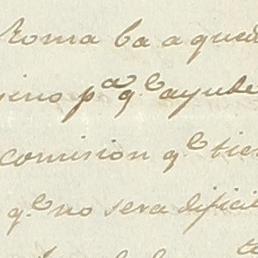 Roma ba a qued
pa q.e ayude
comision q.e tie
q.e no sera dificil